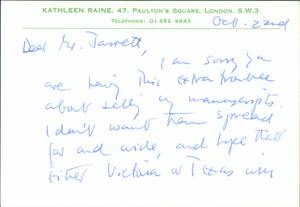 KATHLEEN RAINE. 47, PAULTON'S SQUARE, LONDON. S.W.3.
TELEPHONE: 01-352 4643
Oct. 22nd
Dear Mr. Jarrett,
I am sorry you
are having this extra trouble
about selling my manuscripts.
I don't want them spread
far and wide, and hope that
either Victoria or Texas will